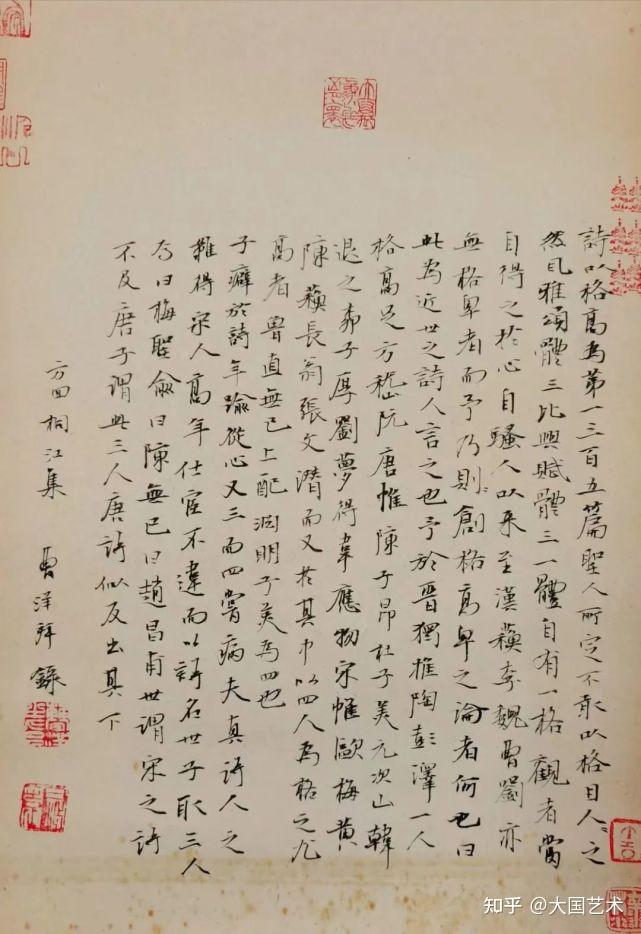 詩以格高為第一三百五篇聖人所定不敢以格目人之
然風雅頌體三比興賦體三一體自有一格觀者當
自得之於心自騷人以来至漢蘇李魏曹劉亦
無格卑者而予乃則創格高卑之論者何也曰
此為近世之詩人言之也予於晉獨推陶彭澤一人
格高足方嵇阮唐惟陳子昂杜子美元次山韓
退之柳子厚劉夢得韋應物宋惟歐梅黄
陳蘇長翁張文潛而又於其中以四人為格之尤
高者魯直無已上配淵明子美為四也
予癖於詩年踰從心又三而四嘗病夫真詩人之
難得宋人高年仕宦不達而以詩名世予取三人
焉曰梅聖俞曰陳無已曰趙昌甫世謂宋之詩
不及唐予謂此三人唐詩似反出其下
方回桐江集 曹洋拜錄
知乎 @大国艺术